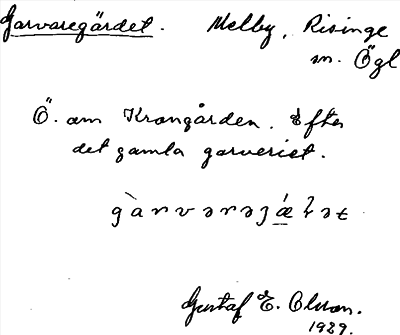 Garvaregärdet. Melby, Risinge
sn. Ögl
Ö. om Krongården. Efter
det gamla garveriet.
gàrvərəjǽɖ̶ət
Gustaf E. Olson.
1929.